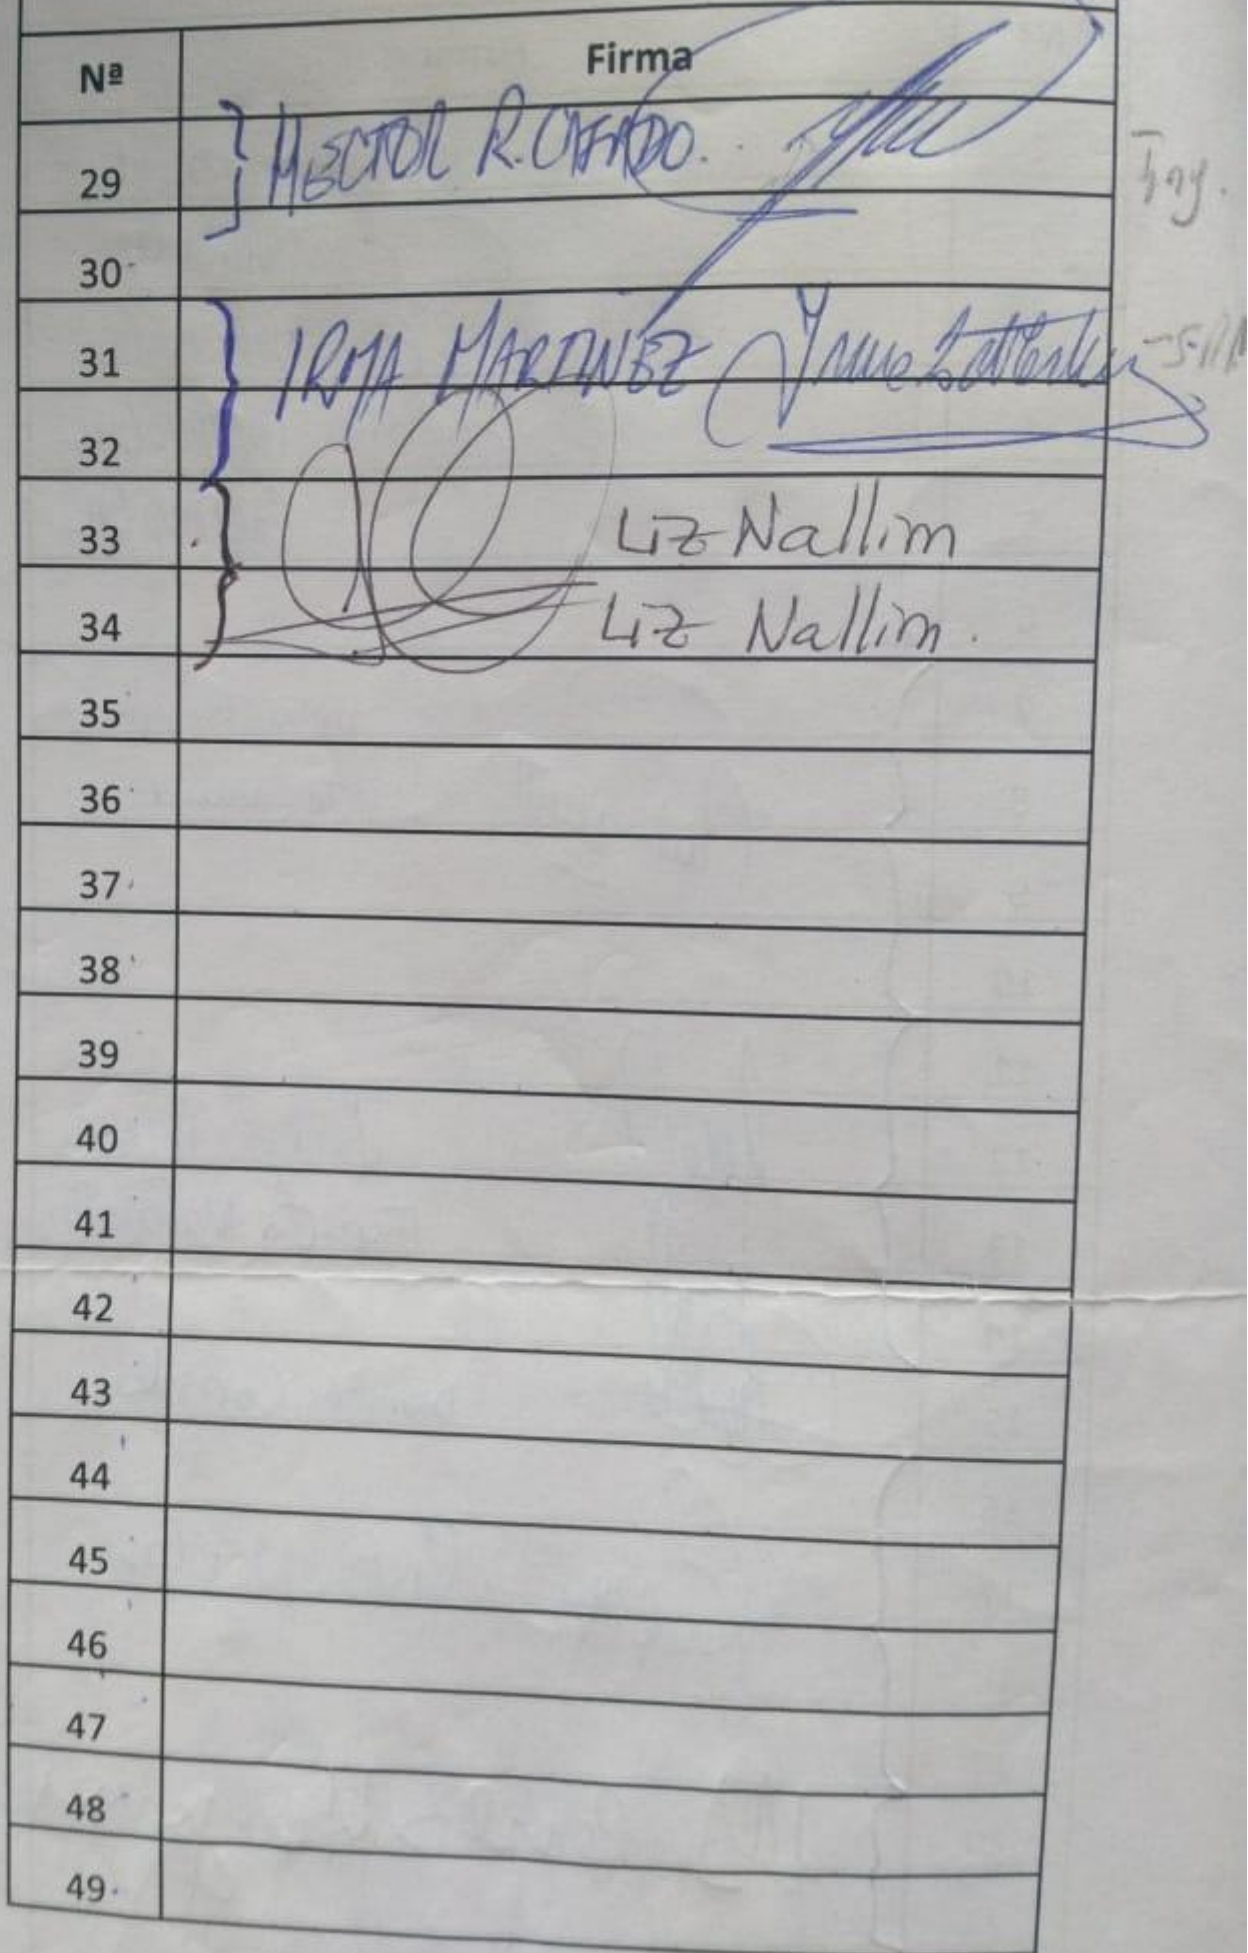 Nª Firma
29 HECTOR R. CAFADO.
30
31 IRMA MARTINEZ
32
33 Liz Nallim
34 Liz Nallim.
35
36
37
38
39
40
41
42
43
44
45
46
47
48
49